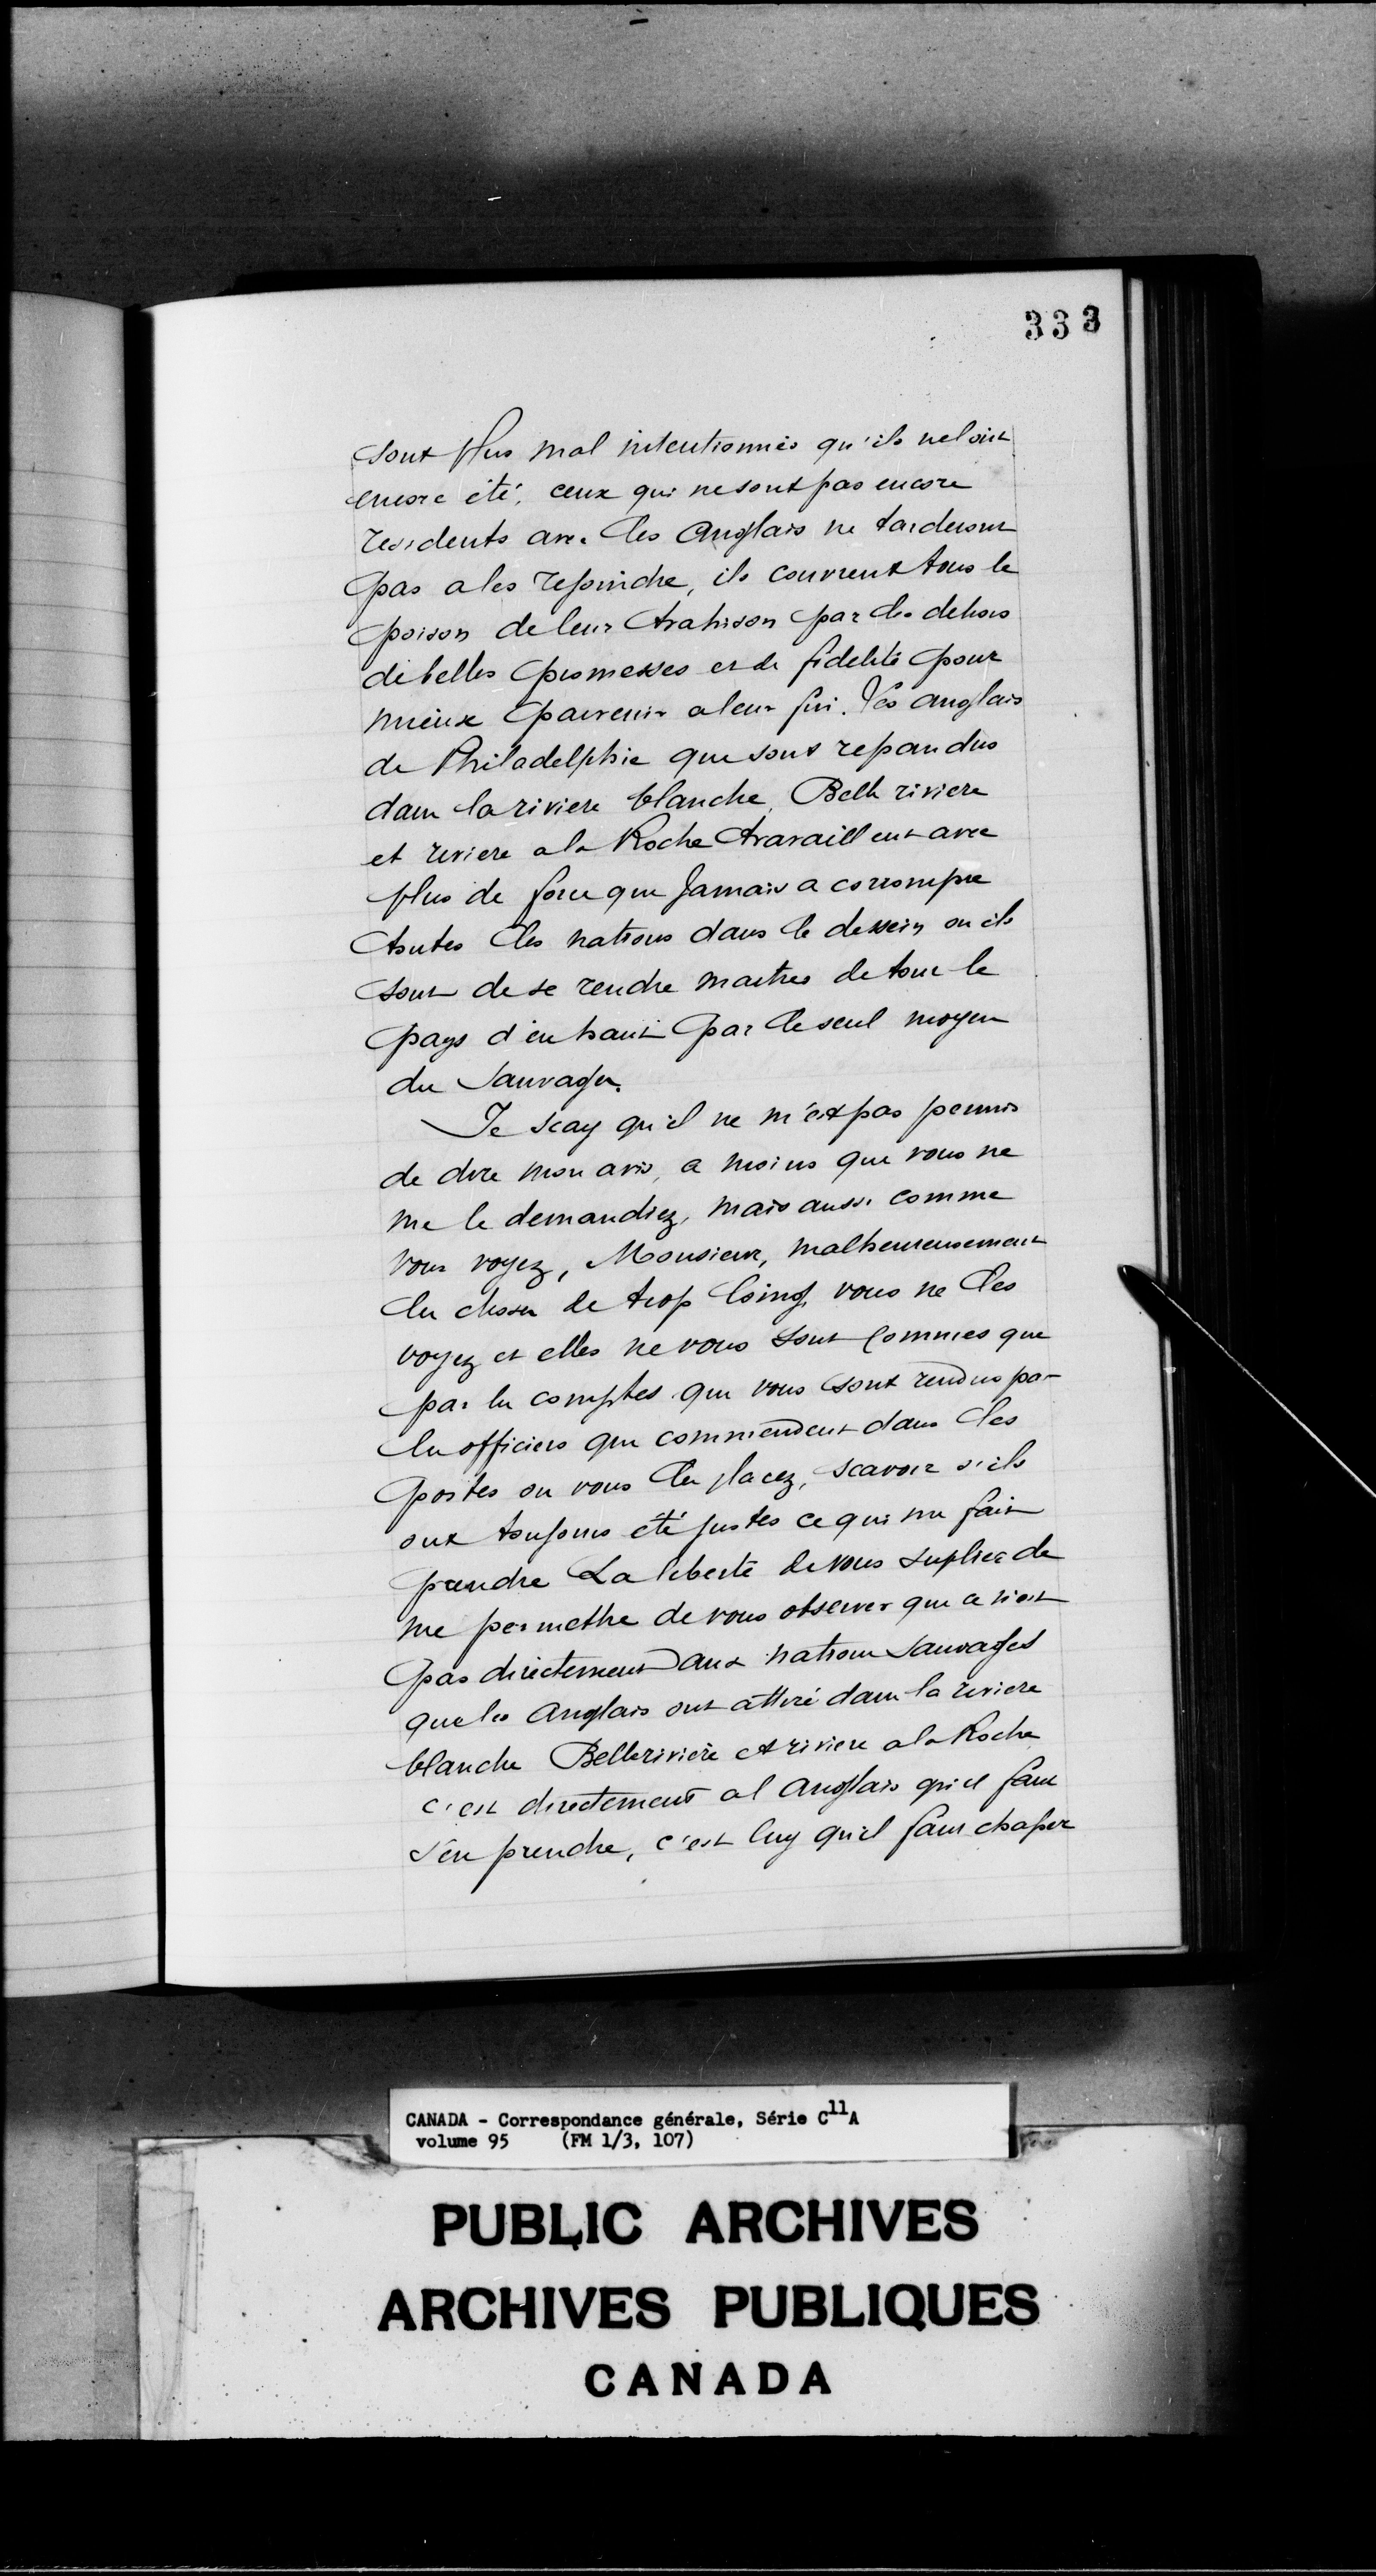 333
sont plus mal intentionnés qu'ils nel'ont
encore été, ceux qui ne sont pas encore
residents avec les Anglais ne tarderont
pas a les rejoindre, ils couvrent tous le
poison de leur trahison par des dehors
de belles promesses et de fidelité pour
mieux parvenir a leur fin. Les anglais
de Philadelphie que sont repandus
dans la riviere blanche, Belle riviere
et riviere a la Roche travaillent avec
plus de force que Jamais a corrompre
toutes les nations dans le dessein ou ils
sont de se rendre maitres de tout le
pays d'en haut par le seul moyen
du Sauvages.
Je scay qu'il ne m'est pas permis
de dire mon avis, a moins que vous ne
me le demandiez, mais aussi comme
vous voyez, Monsieur, malheureusement
les choses de trop loing, vous ne les
voyez et elles ne vous sont connues que
par les comptes que vous sont rendus par
les officiers qui commendent dans les
postes ou vous les placez, scavoir s'ils
ont toujours été justes ce qui me fait
prendre La liberté de vous suplier de
me permettre de vous observer que ce n'est
pas directement aux nations Sauvages
que les Anglais ont attiré dans la riviere
blanche Belleriviere et riviere a la Roche
c'est directement al anglais qu'il faut
s'en prendre, c'est luy qu'il faut chasser
CANADA - Correspondance générale, Série C11A
volume 95 (FM 1/3, 107)
PUBLIC ARCHIVES
ARCHIVES PUBLIQUES
CANADA